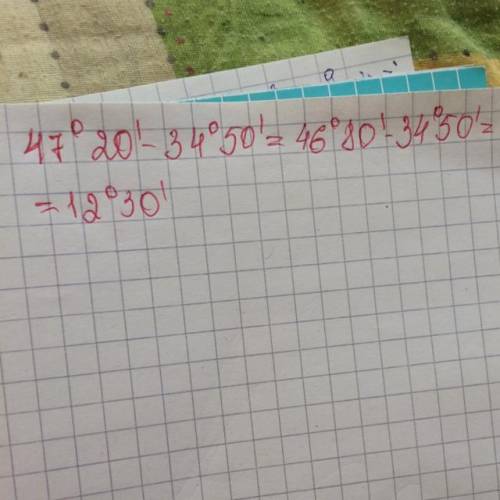 47° 20' - 34°50' = 46°80' - 34°50' =
= 12°30'